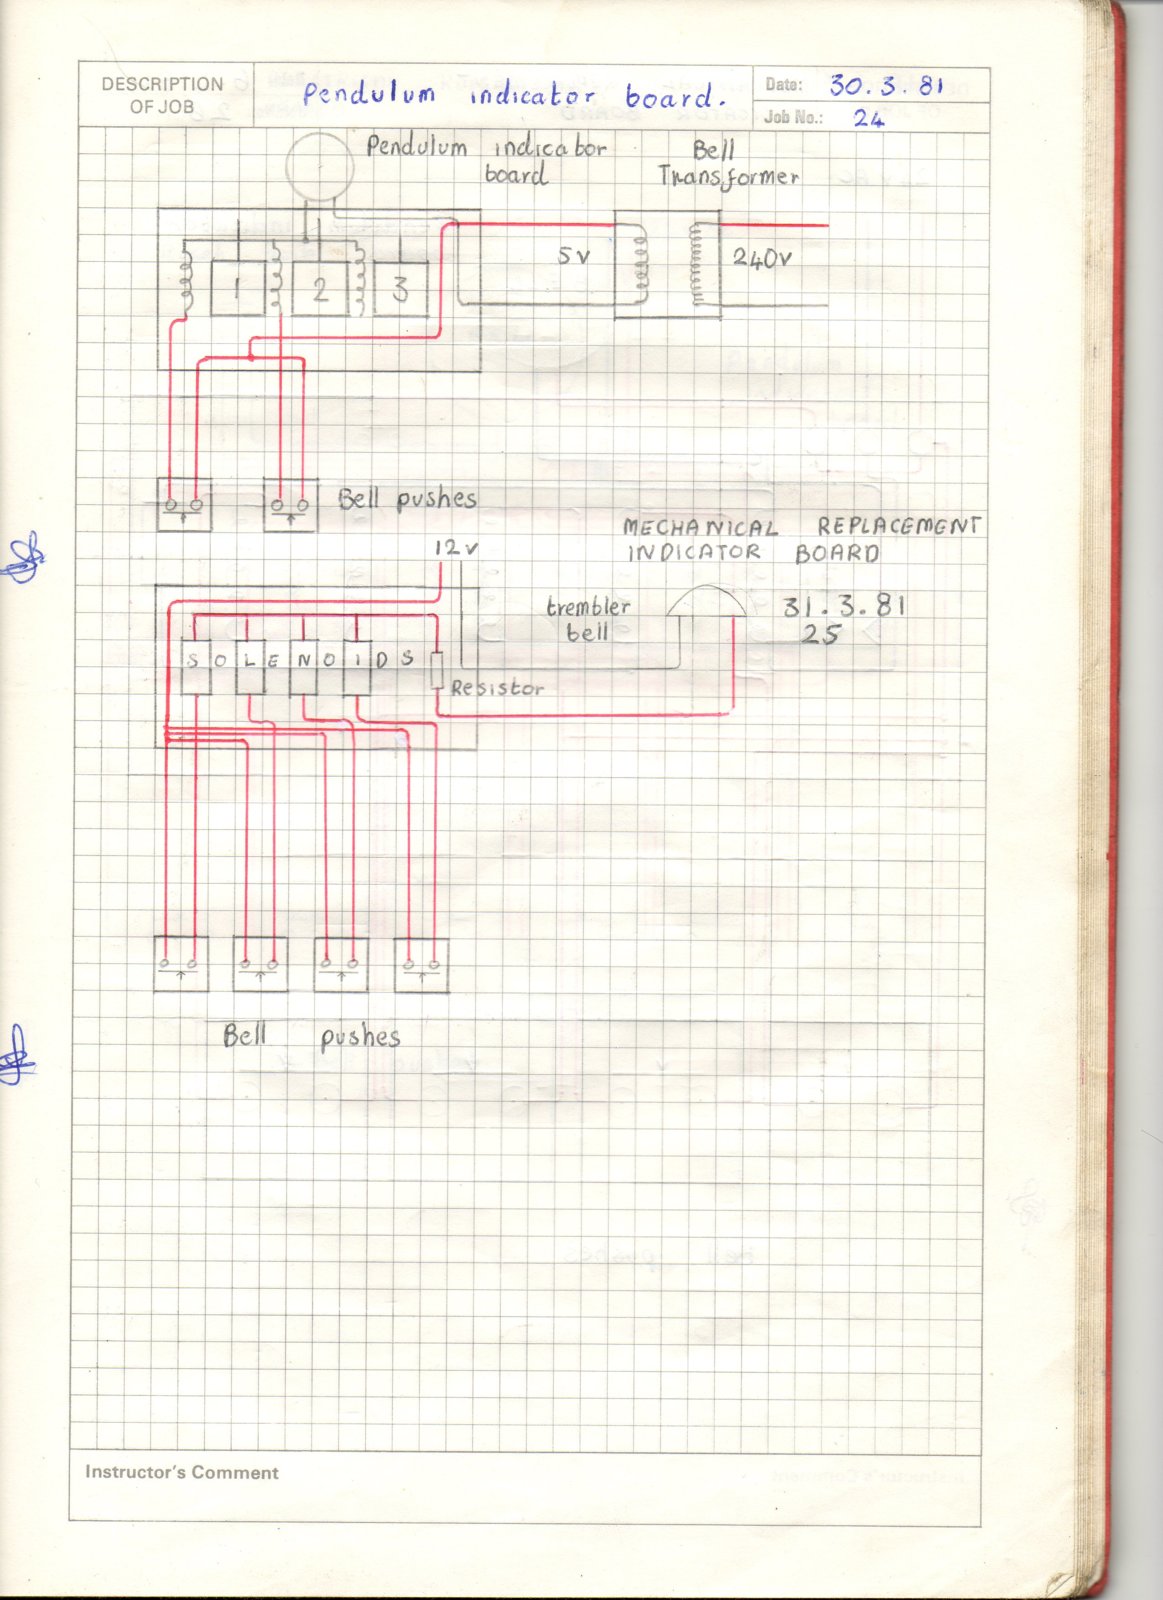 DESCRIPTION
OF JOB
Pendulum indicator board.
Date: 30.3.81
Job No.: 24
Pendulum indicator
board
Bell
Transformer
5v
240v
1 2 3
Bell pushes
MECHANICAL REPLACEMENT
INDICATOR BOARD
12v
trembler
bell
31.3.81
25
SOLENOIDS
Resistor
Bell pushes
Instructor's Comment